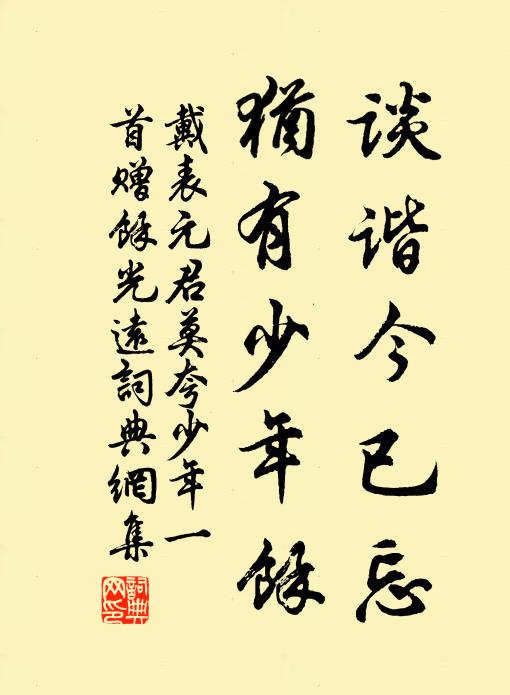 谈谐今已忘
犹有少年餘
戴表元君莫夸少年一
首赠餘光遠詞典網集
詞典